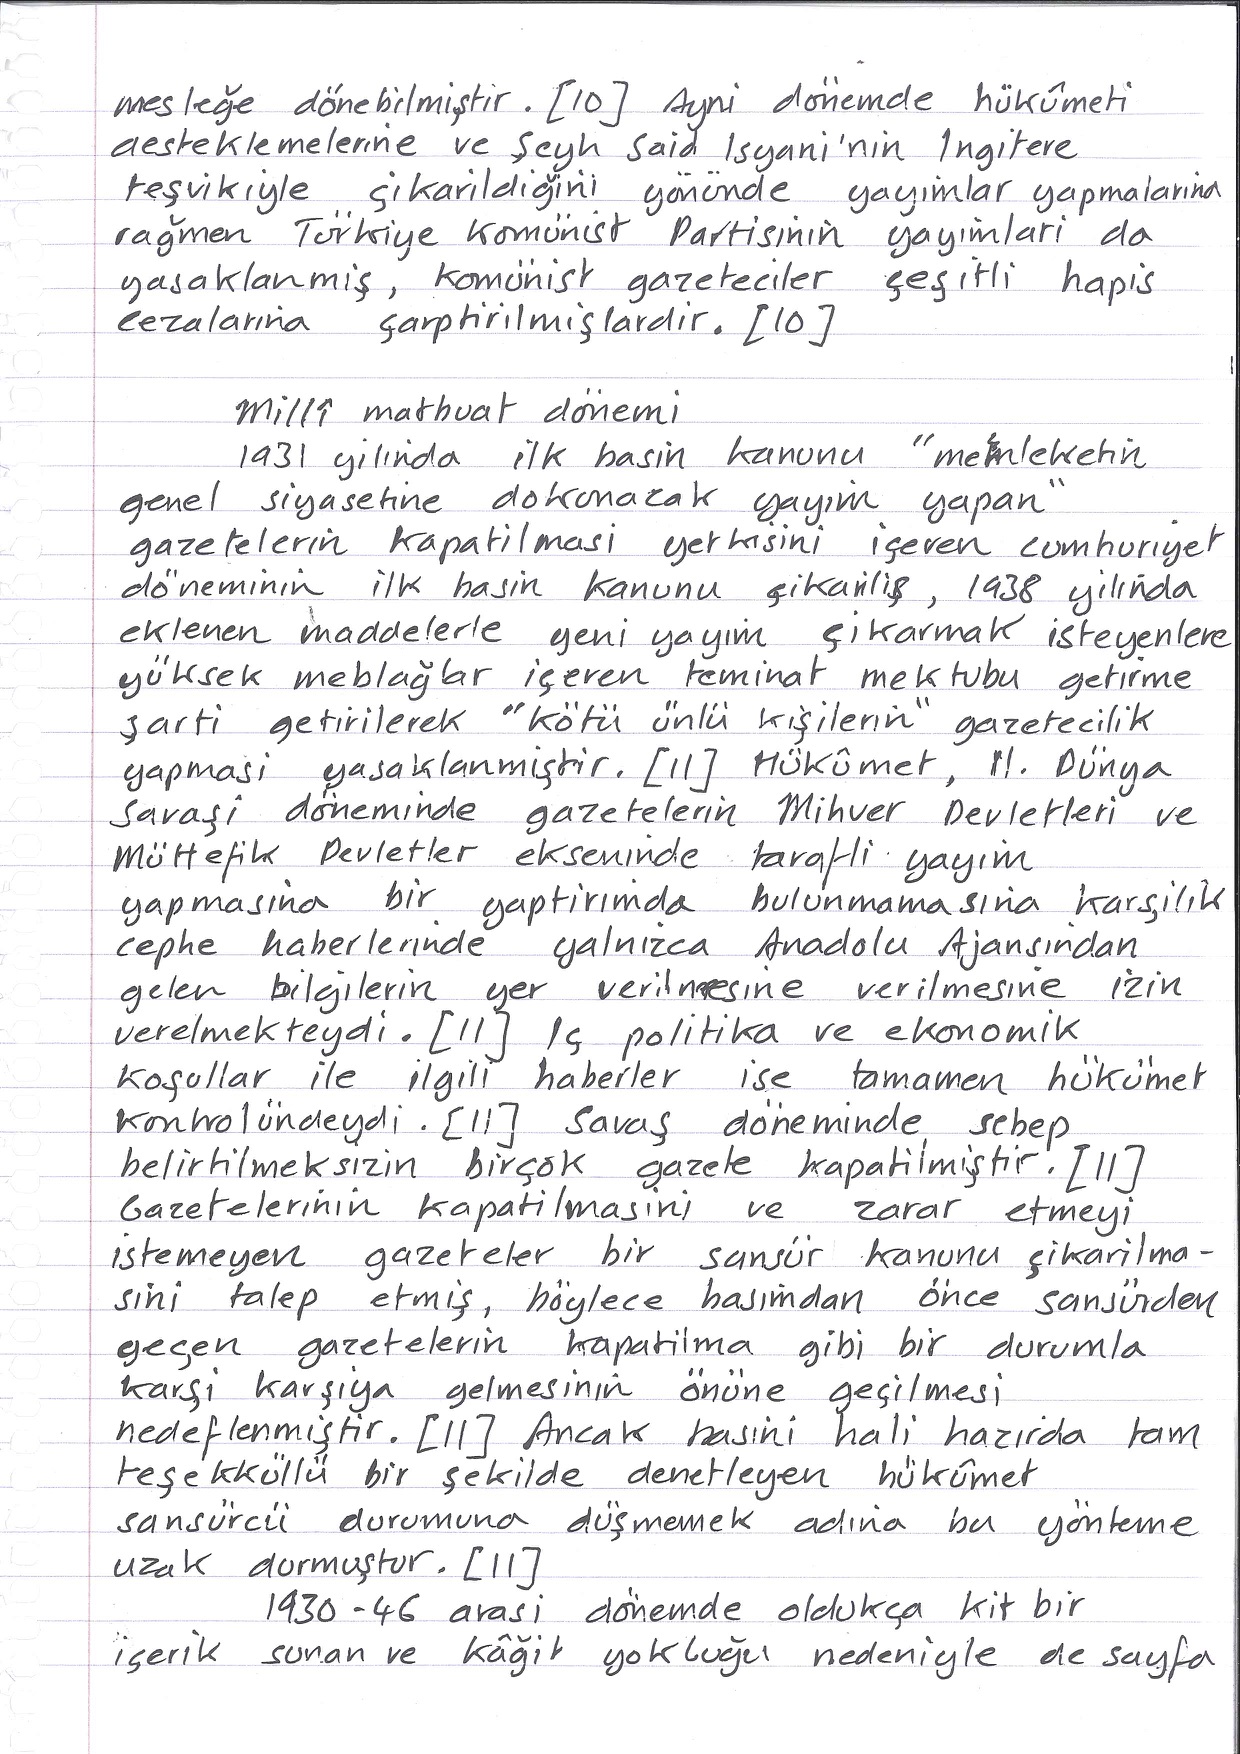 mesleğe dönebilmiştir. [10] Ayni dönemde hükûmeti
desteklemelerine ve Şeyh Said Isyani'nin Ingitere
teşvikiyle çikarildiğini yönünde yayimlar yapmalarina
rağmen Türkiye Komünist Partisinin yayimlari da
yasaklanmiş, komünist gazeteciler çeşitli hapis
cezalarina çarptirilmişlardir. [10]
Millî matbuat dönemi
1931 yilinda ilk basin kanunu "memleketin
genel siyasetine dokunacak yayim yapan"
gazetelerin kapatilmasi yetkisini içeren cumhuriyet
döneminin ilk basin kanunu çikariliş, 1938 yilinda
eklenen maddelerle yeni yayim çikarmak isteyenlere
yüksek meblağlar içeren teminat mektubu getirme
şarti getirilerek "kötü ünlü kişilerin" gazetecilik
yapmasi yasaklanmiştir. [11] Hükûmet, II. Dünya
Savaşi döneminde gazetelerin Mihver Devletleri ve
Müttefik Devletler ekseninde tarafli yayim
yapmasina bir yaptirimda bulunmamasina karşilik
cephe haberlerinde yalnizca Anadolu Ajansindan
gelen bilgilerin yer verilmesine verilmesine izin
verelmekteydi. [11] Iç politika ve ekonomik
koşullar ile ilgili haberler ise tamamen hükümet
kontrolündeydi. [11] Savaş döneminde sebep
belirtilmeksizin birçok gazete kapatilmiştir. [11]
Gazetelerinin kapatilmasini ve zarar etmeyi
istemeyen gazeteler bir sansür kanunu çikarilma-
sini talep etmiş, böylece basimdan önce sansürden
geçen gazetelerin kapatilma gibi bir durumla
karşi karşiya gelmesinin önüne geçilmesi
nedeflenmiştir. [11] Ancak basini hali hazirda tam
teşekküllü bir şekilde denetleyen hükûmet
sansürcü durumuna düşmemek adina bu yönteme
uzak durmuştur. [11]
1930-46 arasi dönemde oldukça kit bir
içerik sunan ve kâğit yokluğu nedeniyle de sayfa